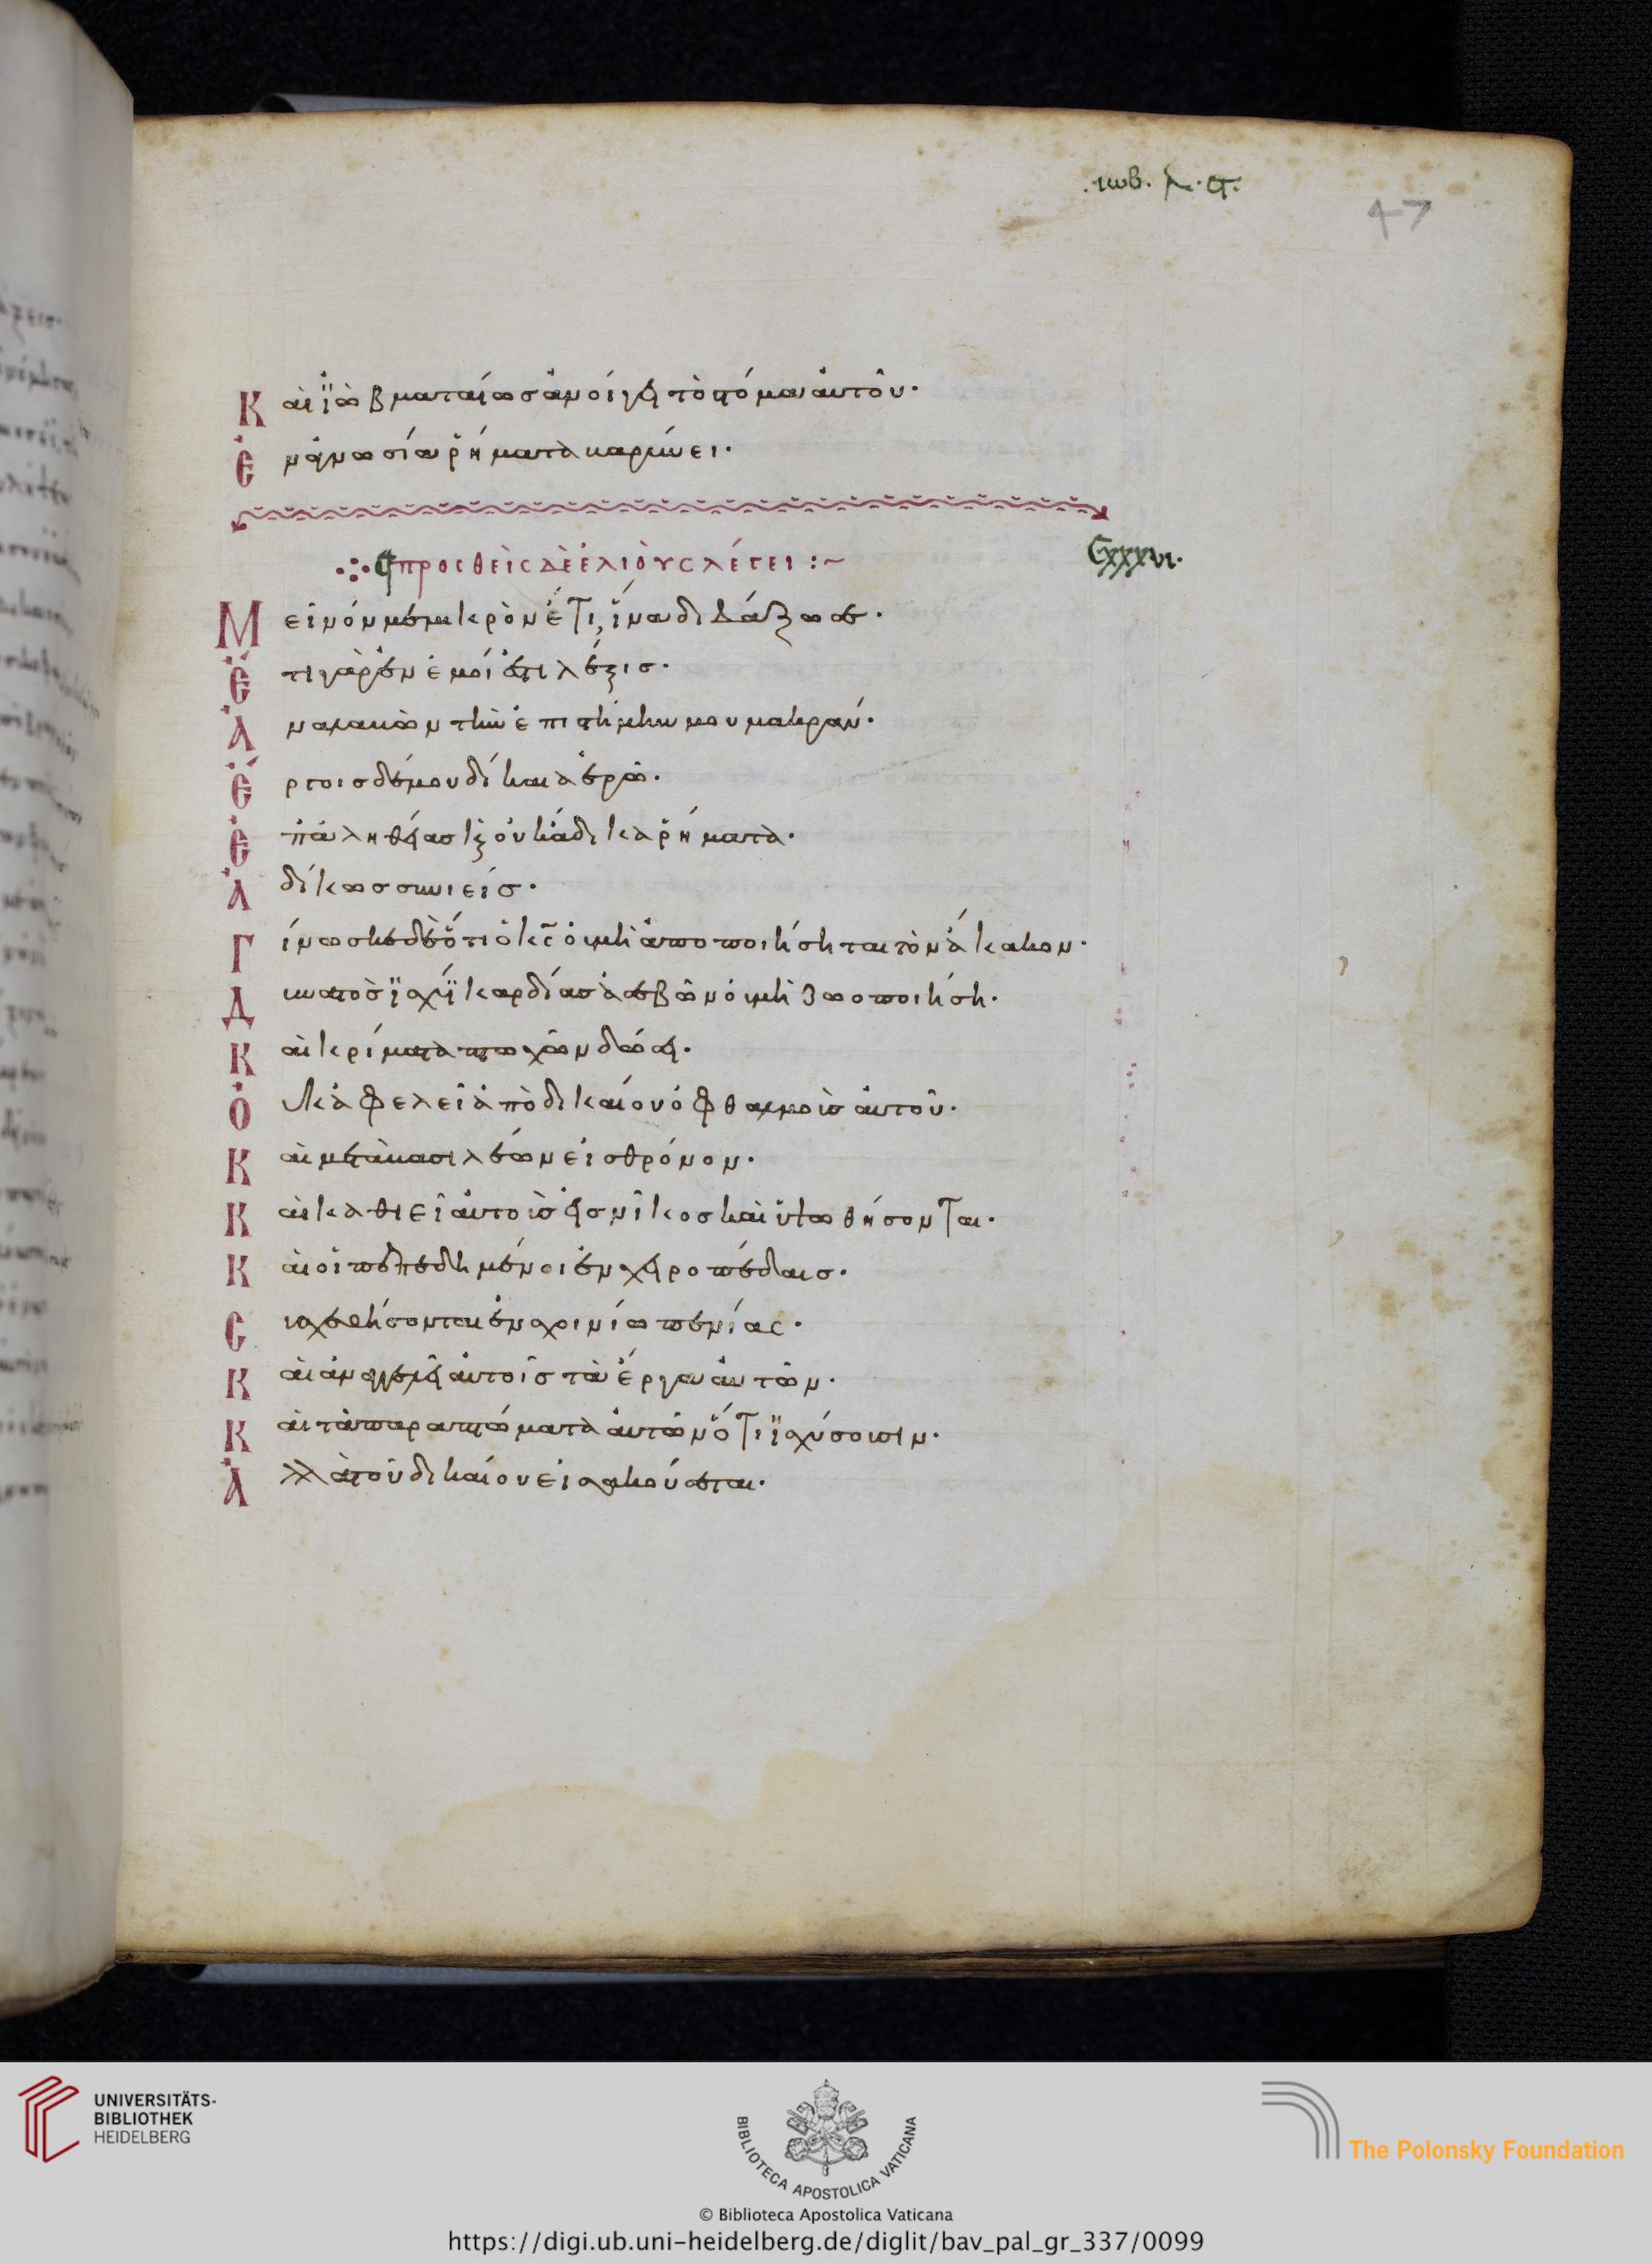 .ιωβ. λ.ϛ.
47
Καὶ ἰὼβ ματαίως ἀνοίγει τὸ στόμα αὐτοῦ·
Ἐν ἀγνωσία ῥήματα βαρύνει·
Προσθεὶς δὲ ἐλιοὺς λέγει :~
Cxxxvi.
Μεῖνόν με μικρὸν ἔτι, ἵνα διδάξω σε·
Ἔτι γὰρ ἐν ἐμοί ἐστι λέξις·
Ἀναλαβὼν τὴν ἐπιστήμην μου μακράν·
Ἔργοις δέ μου δίκαια ἐρῶ·
Ἐπ' ἀληθείας κ̀ οὐκ ἄδικα ῥήματα·
Ἀδίκως συνιεῖς·
Γίνωσκε δὲ ὅτι ὁ κ̅ς̅ οὐ μὴ ἀποποιήσηται τὸν ἄκακον·
Δυνατὸς ἰσχύϊ καρδίας ἀσεβῶν οὐ μὴ ζωοποιήση·
Καὶ κρίματα πτωχῶν δώσει·
Οὐκ ἀφελεῖ ἀπὸ δικαίου ὀφθαλμοὺς αὐτοῦ·
Καὶ μετὰ βασιλέων εἰς θρόνον·
Καὶ καθιεῖ αὐτοὺς εἰς νῖκος καὶ ὑψωθήσονται·
Καὶ οἱ πεπεδημένοι ἐν χειροπέδαις·
Συσχεθήσονται ἐν σχοινίω πενίας·
Καὶ ἀναγγελεῖ αὐτοῖς τὰ ἔργα αὐτῶν·
Καὶ τὰ παραπτώματα αὐτῶν ὅτι ἰσχύσουσιν·
Ἀλλὰ τοῦ δικαίου εἰσακούσεται·
UNIVERSITÄTS-
BIBLIOTHEK
HEIDELBERG
BIBLIOTECA APOSTOLICA VATICANA
The Polonsky Foundation
© Biblioteca Apostolica Vaticana
https://digi.ub.uni-heidelberg.de/diglit/bav_pal_gr_337/0099